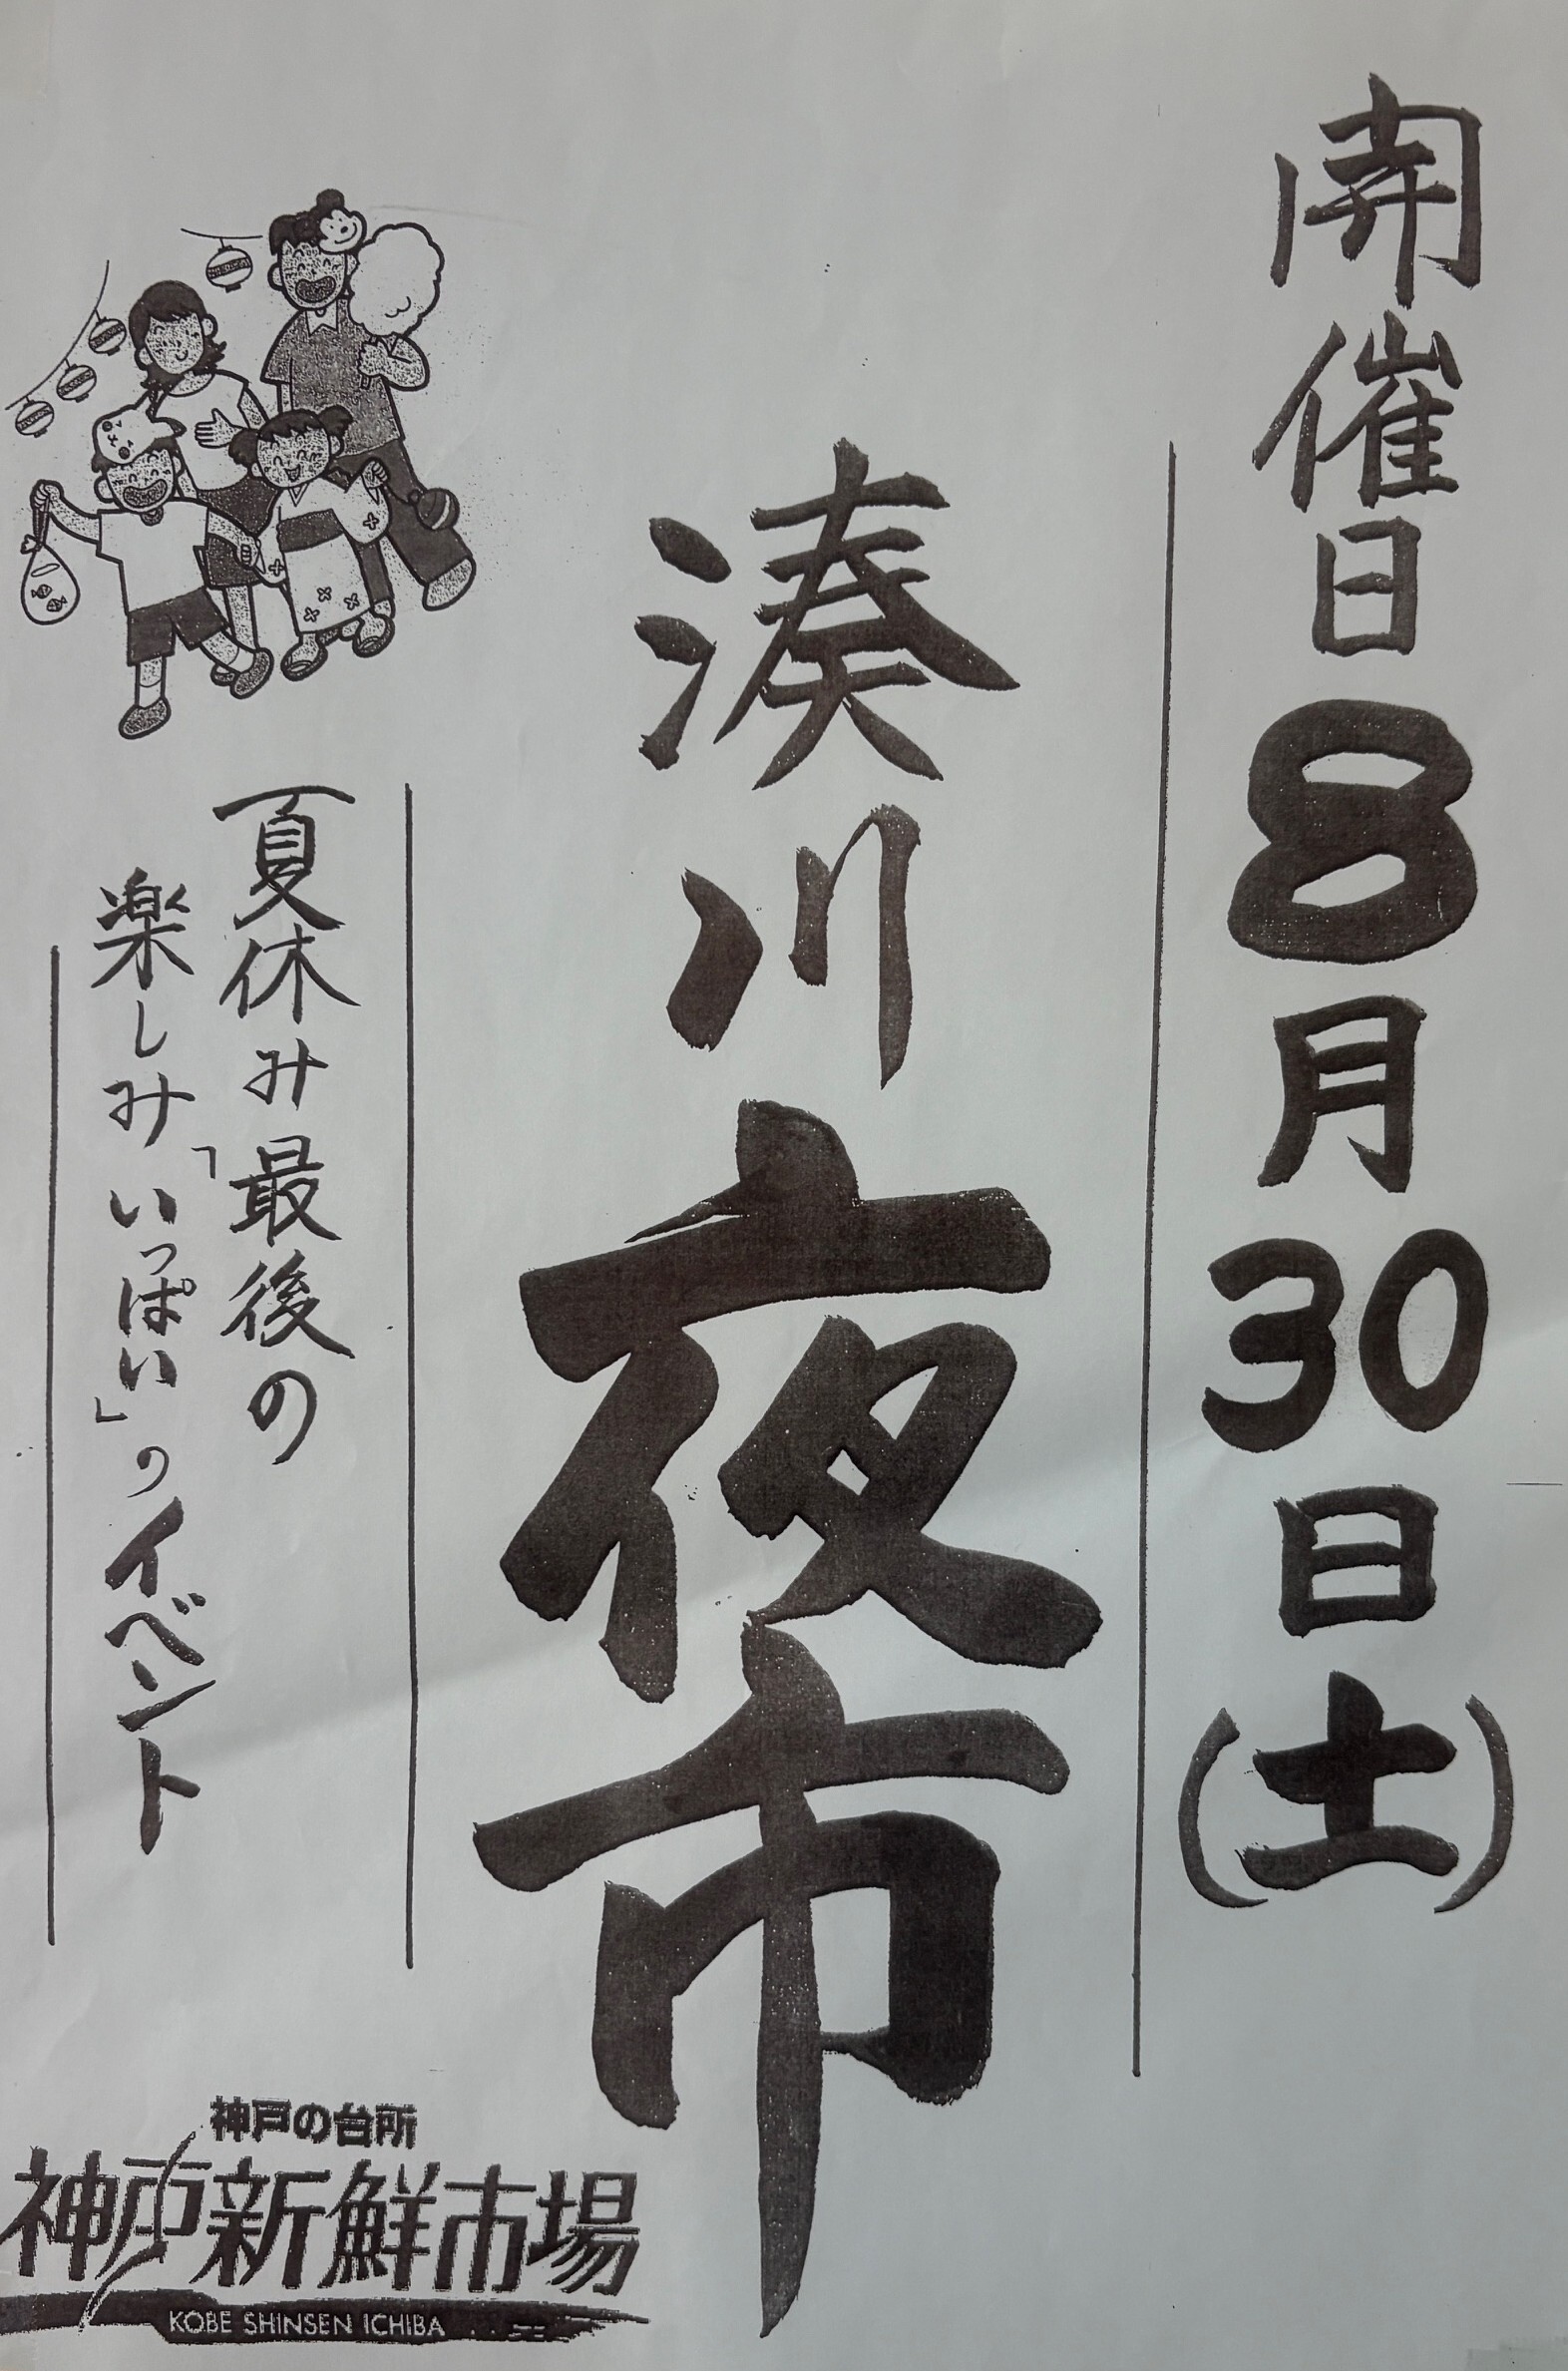 開催日8月30日(土)
湊川夜市
夏休み最後の
楽しみ「いっぱい」のイベント
神戸の台所
神戸新鮮市場
KOBE SHINSEN ICHIBA